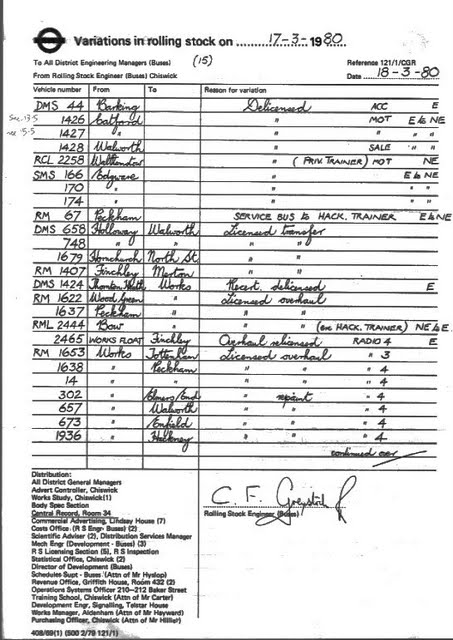 Variations in rolling stock on 17-3-1980
To All District Engineering Managers (Buses) (15) Reference 121/1/CGR
From Rolling Stock Engineer (Buses) Chiswick Date 18-3-80
Vehicle number From To Reason for variation
DMS 44 Barking Delicensed ACC E
1426 Catford " MOT E to NE
1427 " " " " "
1428 Walworth " SALE " "
RCL 2258 Walthamstow " (PRIV. TRAINER) MOT NE
SMS 166 Edgware " E to NE
170 " " " "
174 " " " "
RM 67 Peckham SERVICE BUS to HACK. TRAINER E to NE
DMS 658 Holloway Walworth Licensed transfer
748 " " " "
1679 Hornchurch North St. " "
RM 1407 Finchley Merton " "
DMS 1424 Thornton Heath Works Recert. delicensed E
RM 1622 Wood Green " Licensed overhaul
1637 Peckham " " "
RML 2444 Bow " " " (ex HACK. TRAINER) NE to E
2465 WORKS FLOAT Finchley Overhaul relicensed RADIO 4 E
RM 1653 Works Tottenham Licensed overhaul " 3
1638 " Peckham " " " 4
14 " " " " " 4
302 " Elmers End " repaint " 4
657 " Walworth " " " 4
673 " Enfield " " " 4
1936 " Hackney " " " 4
continued over
Distribution:
All District General Managers
Advert Controller, Chiswick
Works Study, Chiswick(1)
Body Spec Section
Central Record, Room 34
Commercial Advertising, Lindsay House (7)
Costs Office (R S Engr- Buses) (2)
Scientific Adviser (2), Distribution Services Manager
Mech Engr (Development - Buses) (3)
R S Licensing Section (5), R S Inspection
Statistical Office, Chiswick (2)
Director of Development (Buses)
Schedules Supt - Buses (Attn of Mr Hyslop)
Revenue Office, Griffith House, Room 432 (2)
Operations Systems Officer 210–212 Baker Street
Training School, Chiswick (Attn of Mr Carter)
Development Engr, Signalling, Telstar House
Works Manager, Aldenham (Attn of Mr Hayward)
Purchasing Officer, Chiswick (Attn of Mr Hillier)
C. F.
Rolling Stock Engineer (Buses)
408/69(1) (500 2/79 121/1)